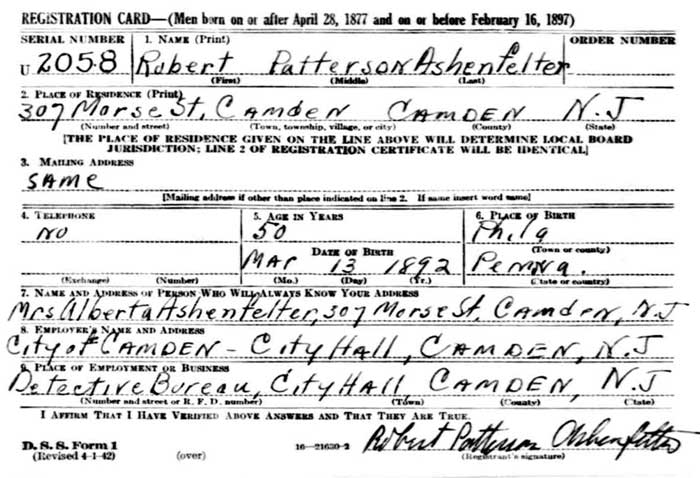 REGISTRATION CARD—(Men born on or after April 28, 1877 and on or before February 16, 1897)
SERIAL NUMBER 1. NAME (Print) ORDER NUMBER
U 2058 Robert Patterson Ashenfelter
(First) (Middle) (Last)
2. PLACE OF RESIDENCE (Print)
307 Morse St, CAMDEN CAMDEN N.J
(Number and street) (Town, township, village, or city) (County) (State)
[THE PLACE OF RESIDENCE GIVEN ON THE LINE ABOVE WILL DETERMINE LOCAL BOARD
JURISDICTION; LINE 2 OF REGISTRATION CERTIFICATE WILL BE IDENTICAL]
3. MAILING ADDRESS
SAME
[Mailing address if other than place indicated on line 2. If same insert word same]
4. TELEPHONE 5. AGE IN YEARS 6. PLACE OF BIRTH
NO 50 Phila
DATE OF BIRTH (Town or county)
MAR 13 1892 Penna.
(Exchange) (Number) (Mo.) (Day) (Yr.) (State or country)
7. NAME AND ADDRESS OF PERSON WHO WILL ALWAYS KNOW YOUR ADDRESS
Mrs Alberta Ashenfelter, 307 Morse St, Camden, N.J
8. EMPLOYER'S NAME AND ADDRESS
City of CAMDEN - City Hall, CAMDEN, N.J
9. PLACE OF EMPLOYMENT OR BUSINESS
Detective Bureau, City Hall CAMDEN, N.J
(Number and street or R. F. D. number) (Town) (County) (State)
I AFFIRM THAT I HAVE VERIFIED ABOVE ANSWERS AND THAT THEY ARE TRUE.
D. S. S. Form 1
(Revised 4-1-42) (over) 16—21630-2 Robert Patterson Ashenfelter
(Registrant's signature)